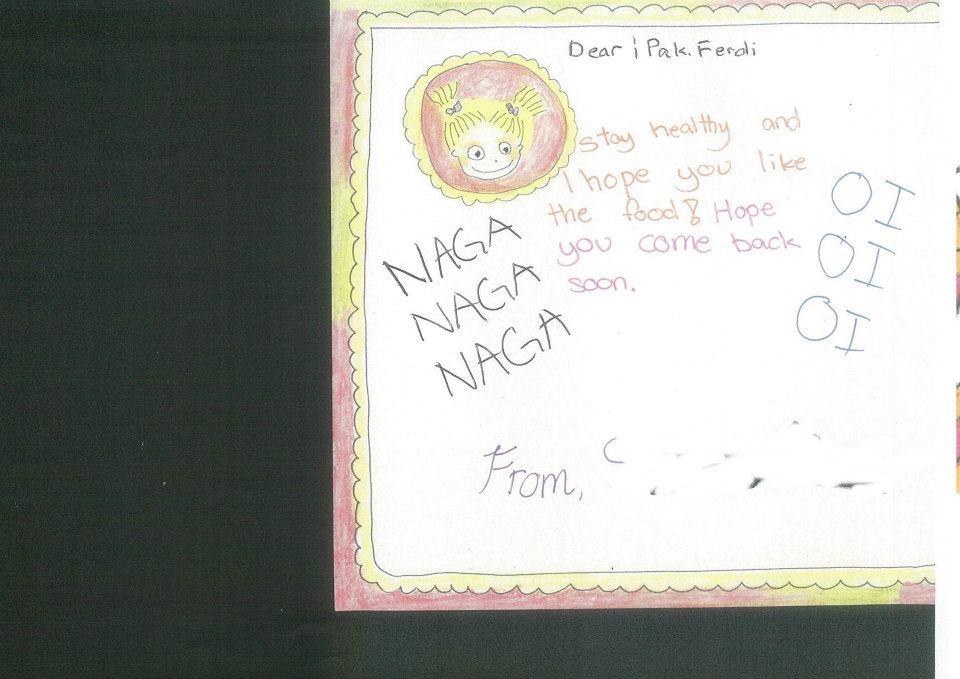 Dear ; Pak. Ferdi
stay healthy and
I hope you like
the food! Hope
you come back
soon.
NAGA
NAGA
NAGA
OI
OI
OI
From,